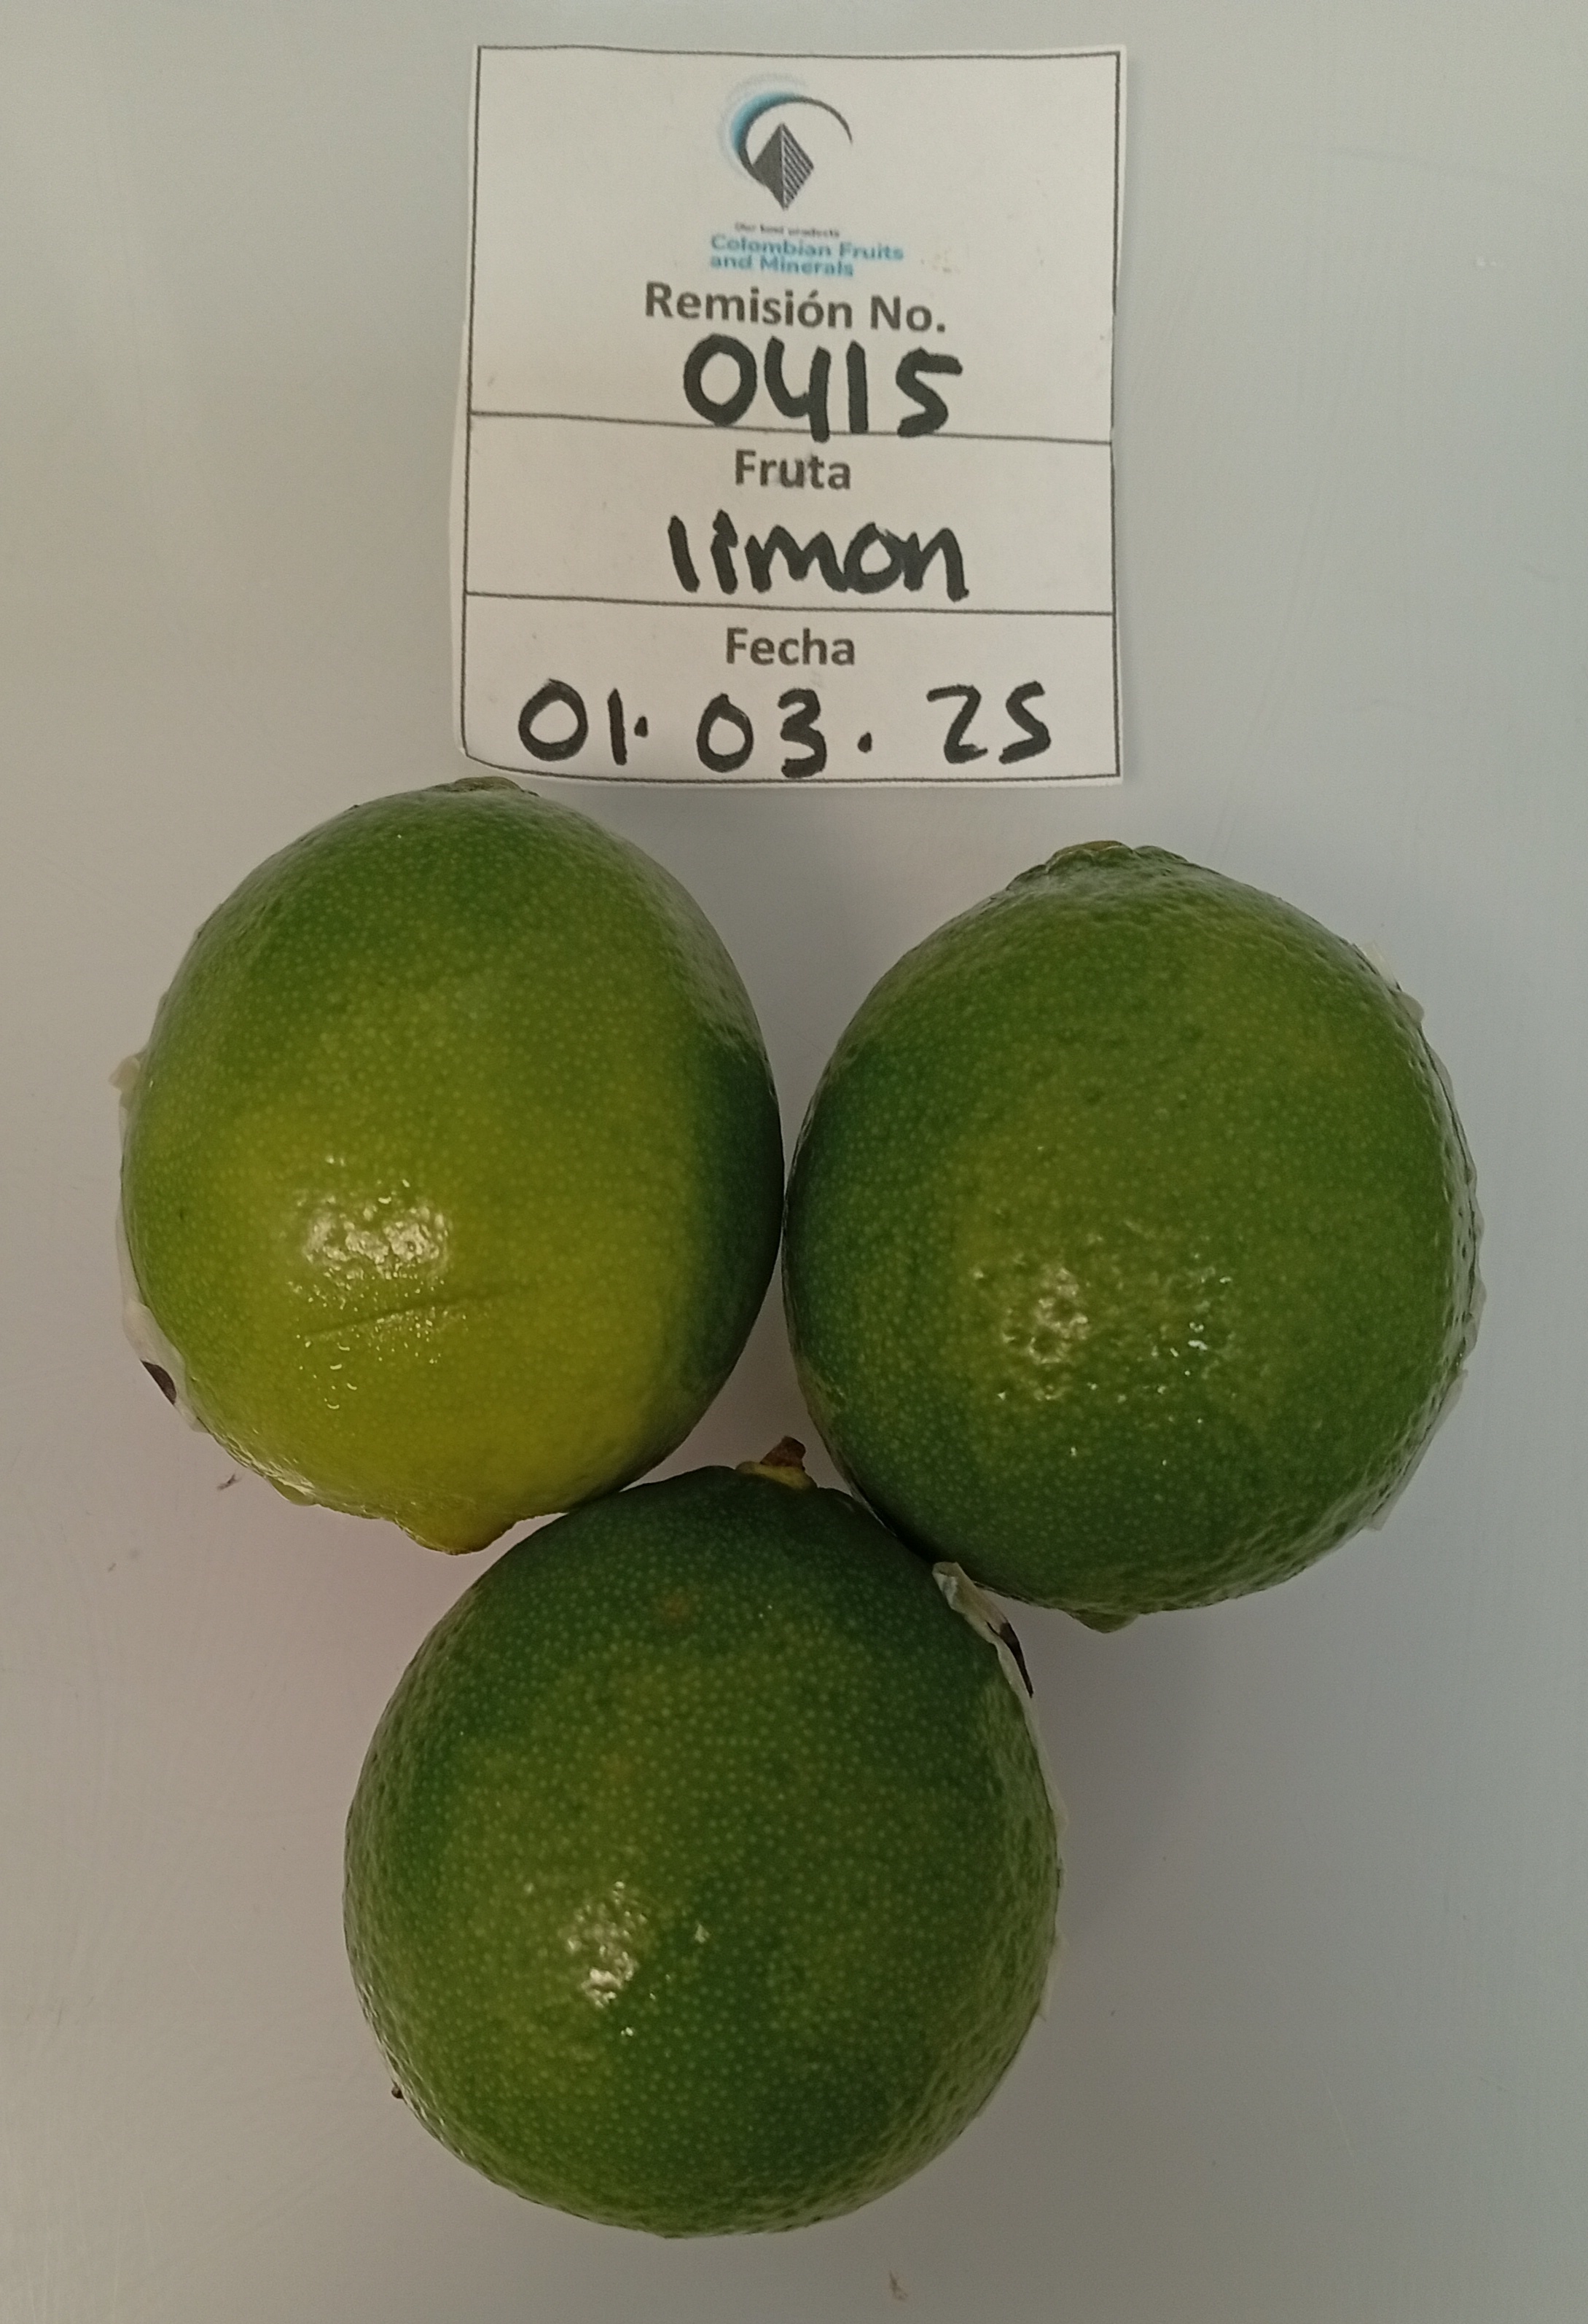 Our best products
Colombian Fruits
and Minerals
Remisión No.
0415
Fruta
limon
Fecha
01.03.25